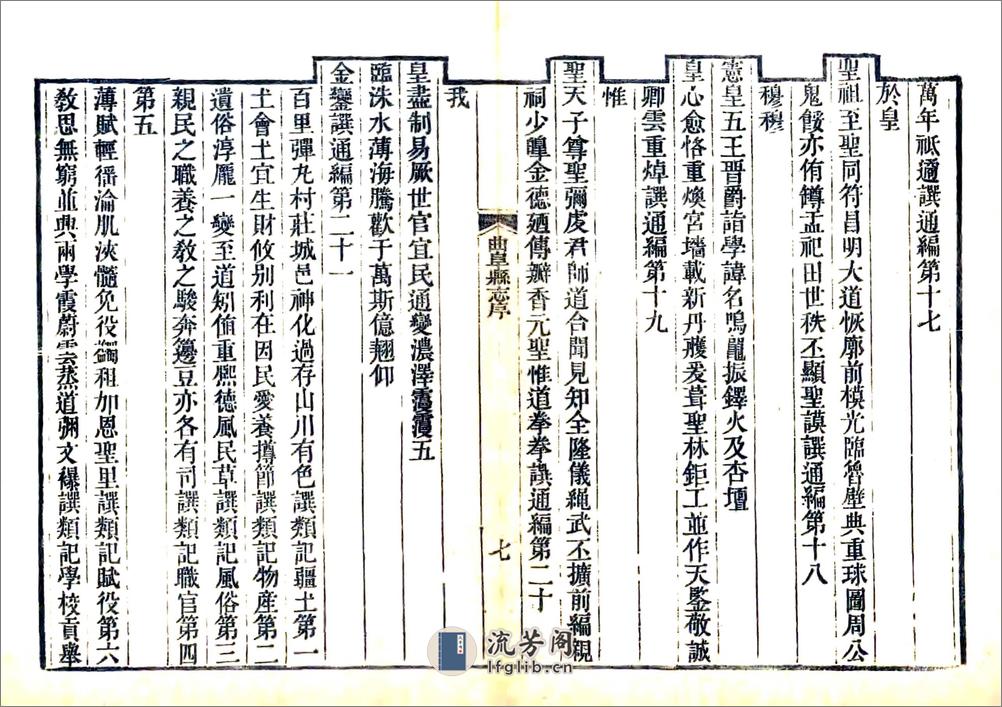 萬年祗遹譔通編第十七
於皇
聖祖至聖同符昌明大道恢廓前模光臨魯壁典重球圖周公
鬼餒亦侑罇盂祀田世秩丕顯聖謨譔通編第十八
穆穆
憲皇五王晋爵詣學諱名鳴龍振鐸火及杏壇
皇心愈恪重煥宮墻載新丹雘爰葺聖林鉅工並作天鑒敬誠
卿雲重焯譔通編第十九
惟
聖天子尊聖彌虔君師道合聞見知全隆儀繩武丕擴前編親
祠少皥金德廼傳瓣香元聖惟道拳拳譔通編第二十
曲阜縣志序
七
我
皇盡制易厥世官宜民通變濃澤霮霮五
臨洙水薄海騰歡于萬斯億翹仰
金鑾譔通編第二十一
百里彈丸村莊城邑神化過存山川有色譔類記疆土第一
土會土宜生財攸别利在因民愛養撙節譔類記物產第二
遺俗淳龐一變至道矧侑重熈德風民草譔類記風俗第三
親民之職養之敎之駿奔籩豆亦各有司譔類記職官第四
第五
薄賦輕徭淪肌浹髓免役蠲租加恩聖里譔類記賦役第六
敎思無窮並興兩學霞蔚雲蒸道彌文襮譔類記學校貢舉
流芳阁
lfglib.cn